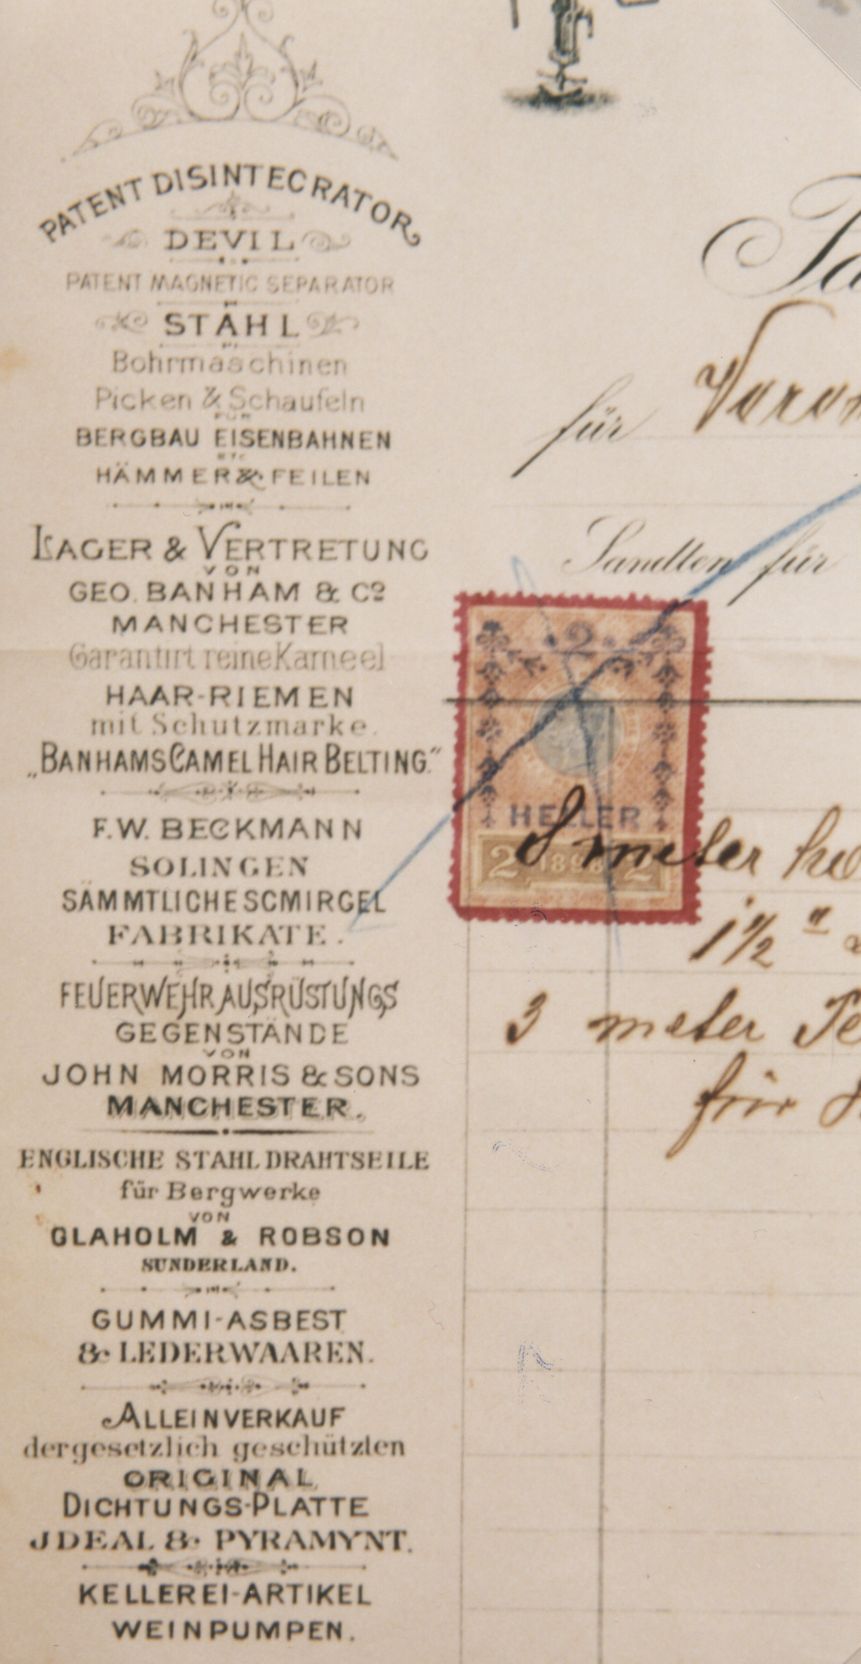 PATENT DISINTEGRATOR
DEVIL
PATENT MAGNETIC SEPARATOR
STAHL
Bohrmaschinen
Picken & Schaufeln
FÜR
BERGBAU EISENBAHNEN
ETC
HÄMMER & FEILEN
LAGER & VERTRETUNG
VON
GEO. BANHAM & Co
MANCHESTER
Garantirt reine Kameel
HAAR-RIEMEN
mit Schutzmarke.
„BANHAMS CAMEL HAIR BELTING."
F.W. BECKMANN
SOLINGEN
SÄMMTLICHE SCMIRGEL
FABRIKATE.
FEUERWEHRAUSRÜSTUNGS
GEGENSTÄNDE
VON
JOHN MORRIS & SONS
MANCHESTER.
ENGLISCHE STAHLDRAHTSEILE
für Bergwerke
VON
GLAHOLM & ROBSON
SUNDERLAND.
GUMMI-ASBEST
& LEDERWAAREN.
ALLEINVERKAUF
der gesetzlich geschützten
ORIGINAL
DICHTUNGS-PLATTE
JDEAL & PYRAMYNT.
KELLEREI-ARTIKEL
WEINPUMPEN.
für
Sandten für
2
HELLER
2 1898 2
8 meter
1½"
3 meter
für